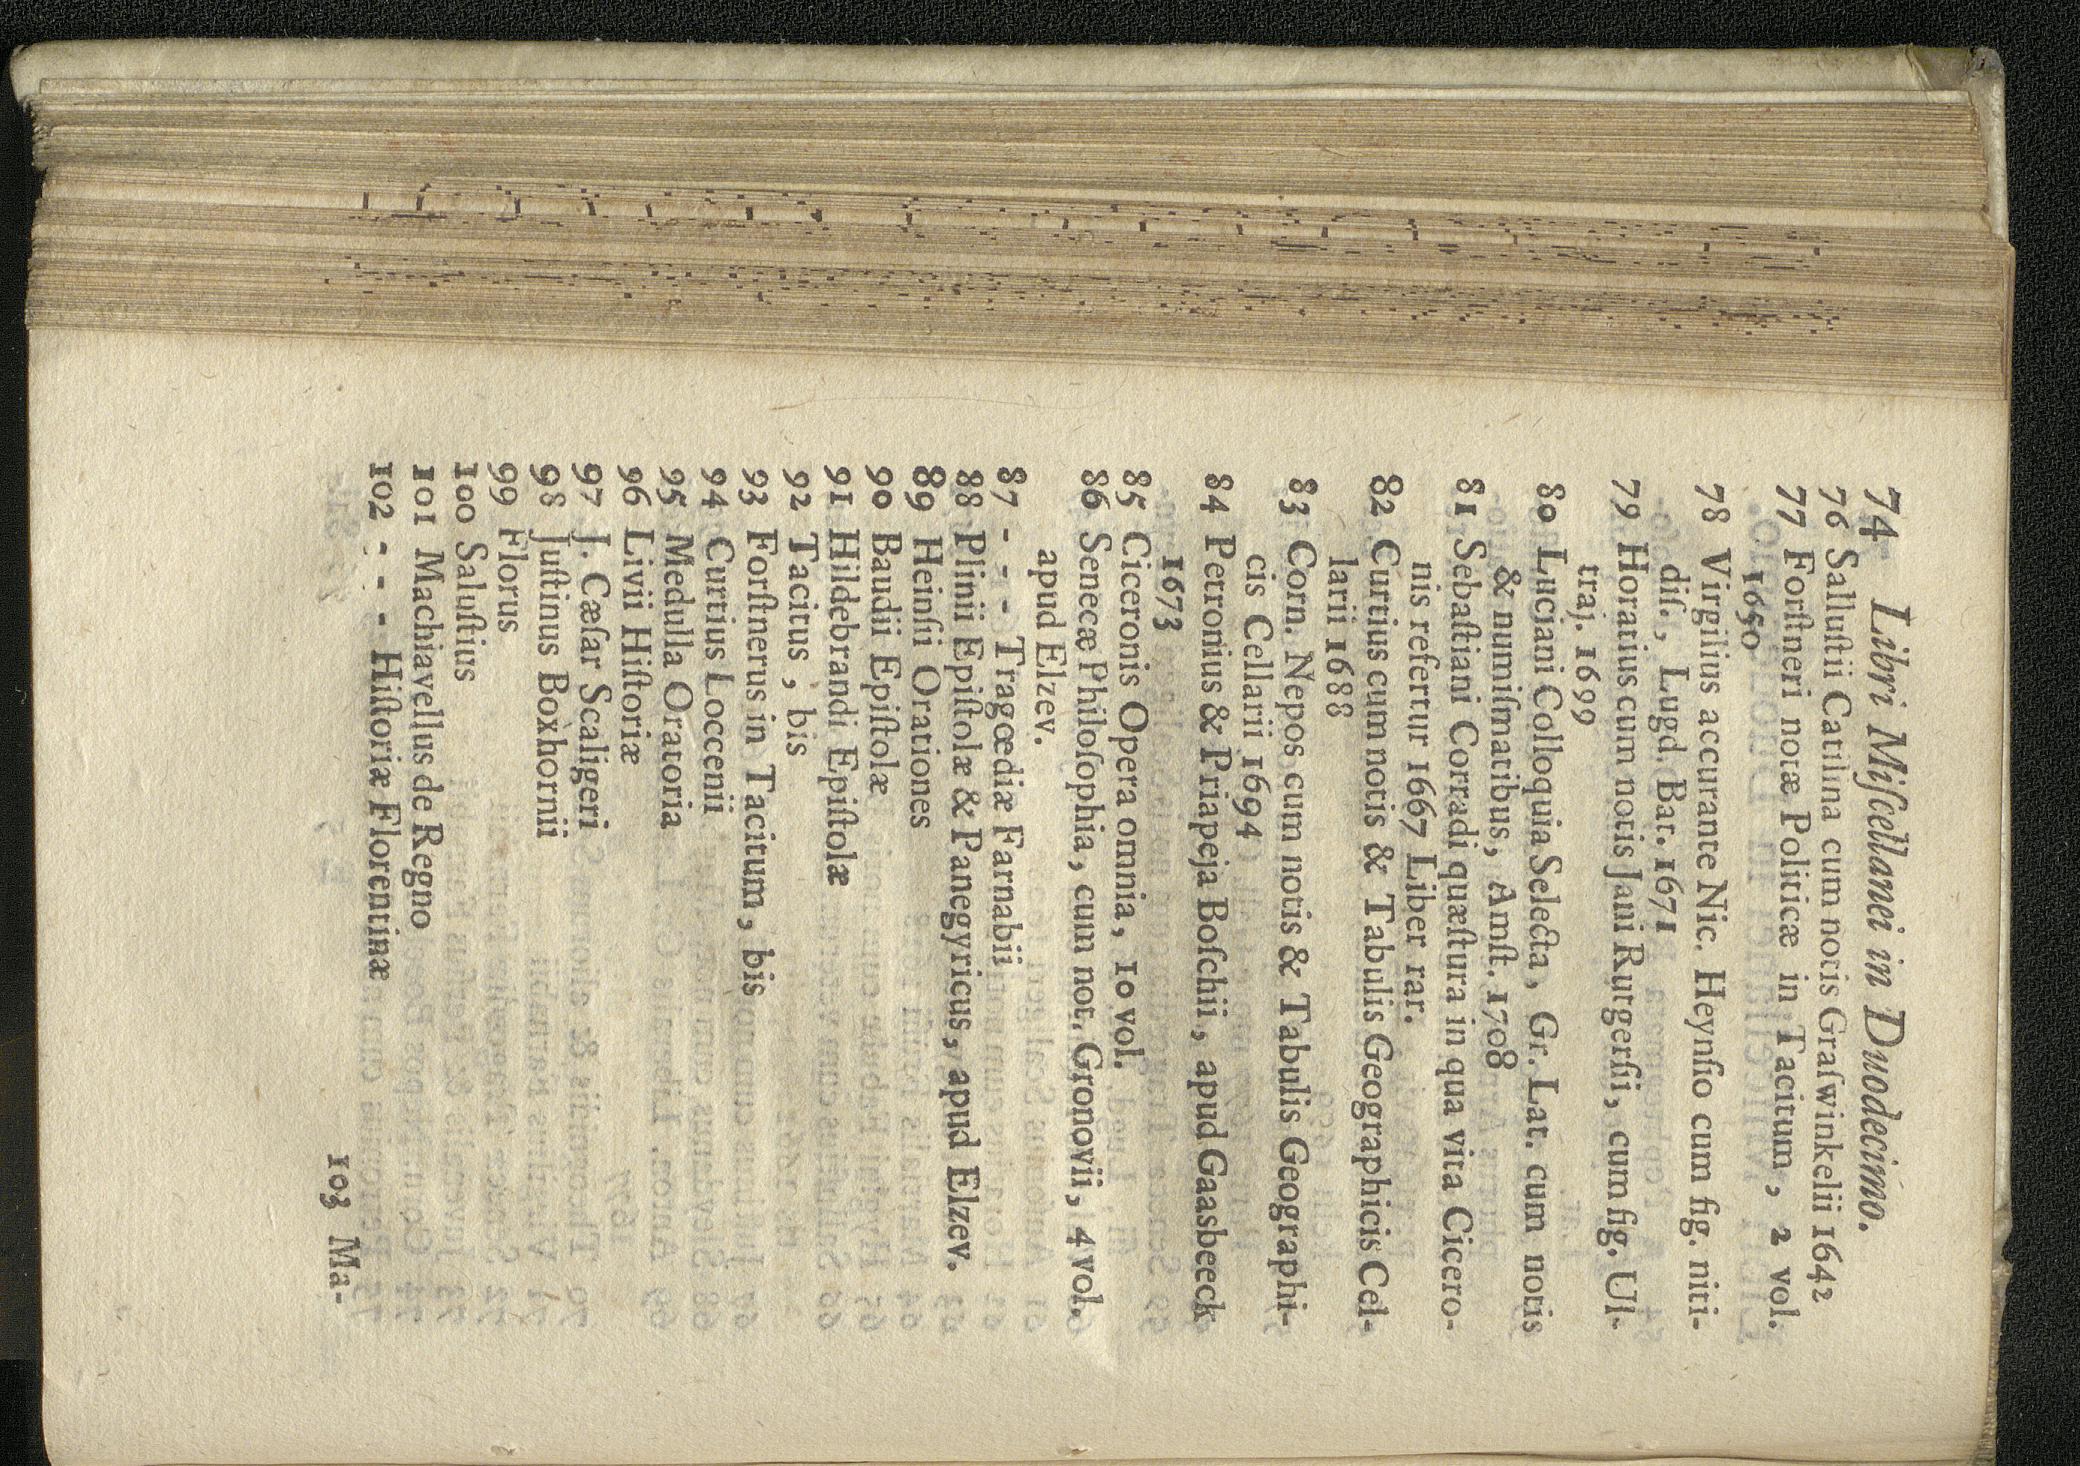 74 Libri Miſcellanei in Duodecimo.
76 Salluſtii Catilina cum notis Graſwinkelii 1642
77 Forſtneri notæ Politicæ in Tacitum, 2 vol.
1650
78 Virgilius accurante Nic. Heynſio cum fig. niti-
diſ., Lugd. Bat. 1671
79 Horatius cum notis Jani Rutgerſii, cum fig. Ul-
traj. 1699
80 Luciani Colloquia Selecta, Gr. Lat. cum notis
& numiſmatibus, Amſt. 1708
81 Sebaſtiani Corradi quæſtura in qua vita Cicero-
nis refertur 1667 Liber rar.
82 Curtius cum notis & Tabulis Geographicis Cel-
larii 1688
83 Corn. Nepos cum notis & Tabulis Geographi-
cis Cellarii 1694
84 Petronius & Priapeja Boſchii, apud Gaasbeeck
1673
85 Ciceronis Opera omnia, 10 vol.
86 Senecæ Philoſophia, cum not. Gronovii, 4 vol.
apud Elzev.
87 - - - Tragœdiæ Farnabii
88 Plinii Epiſtolæ & Panegyricus, apud Elzev.
89 Heinſii Orationes
90 Baudii Epiſtolæ
91 Hildebrandi Epiſtolæ
92 Tacitus, bis
93 Forſtnerus in Tacitum, bis
94 Curtius Loccenii
95 Medulla Oratoria
96 Livii Hiſtoriæ
97 J. Cæſar Scaligeri
98 Juſtinus Boxhornii
99 Florus
100 Saluſtius
101 Machiavellus de Regno
102 - - - Hiſtoriæ Florentinæ
103 Ma-